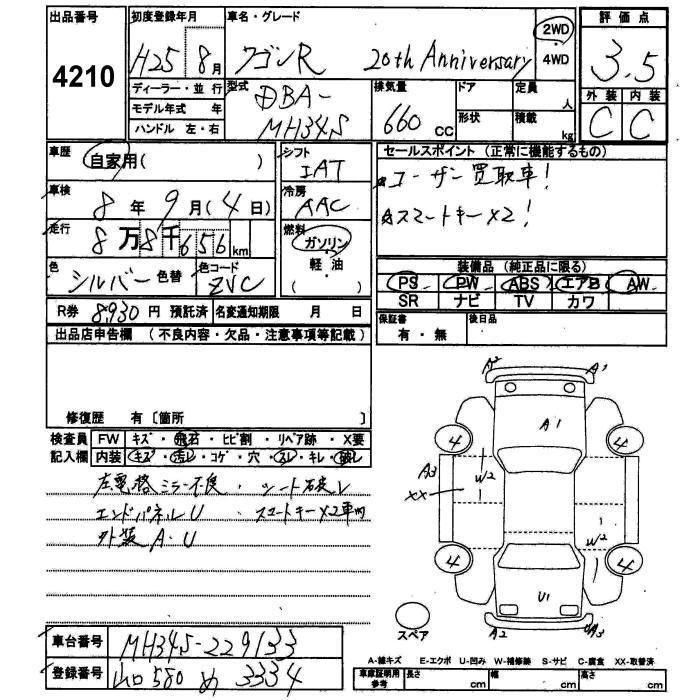 出品番号
4210
初度登録年月
H25 8月
ディーラー・並行
モデル年式 年
ハンドル 左・右
車名・グレード
ワゴンR 20th Anniversary
2WD
・
4WD
型式
DBA-
MH34S
排気量
660 CC
ドア
形状
定員
人
積載
kg
評価点
3.5
外装 内装
C C
車歴
自家用( )
車検
8年9月(4日)
走行
8万8千656km
色
シルバー 色替
色コード
ZVC
シフト
IAT
冷房
AAC
燃料
ガソリン
軽・油
( )
セールスポイント (正常に機能するもの)
☆ユーザー買取車!
☆スマートキー×2!
装備品 (純正品に限る)
PS PW ABS エアB AW
SR ナビ TV カワ
R券 8930円 預託済 名変通知期限 月 日
保証書
有・無
後日品
出品店申告欄 (不良内容・欠品・注意事項等記載)
修復歴 有〔箇所 〕
検査員
記入欄
FW キズ・飛石・ヒビ割・リペア跡・X要
内装 キズ・汚レ・コゲ・穴・スレ・キレ・破レ
左電格ミラー不良・シート破レ
エンドパネルU・スマートキー×2車内
外装A・U
A2 A1
A1
4 4
A3
XX
W2
W2
4 4
U1
A2 UA3
スペア
車台番号 MH34S-229133
登録番号 山口580 め 3334
A-線キズ E-エクボ U-凹み W-補修跡 S-サビ C-腐食 XX-取替済
車庫証明用
参考
長さ cm 幅 cm 高さ cm